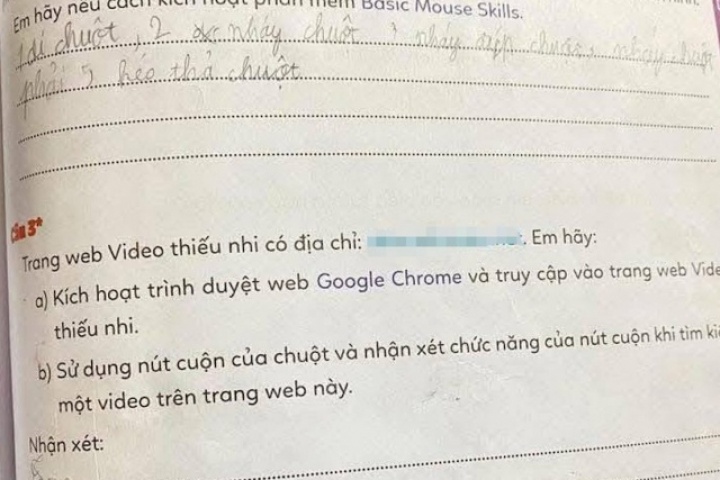 Em hãy nêu cách kích hoạt phần mềm Basic Mouse Skills.
1 di chuột, 2 nháy chuột 3 nháy đúp chuột, nháy chuột
phải 5 kéo thả chuột
Câu 3*
Trang web Video thiếu nhi có địa chỉ: . Em hãy:
a) Kích hoạt trình duyệt web Google Chrome và truy cập vào trang web Vide
thiếu nhi.
b) Sử dụng nút cuộn của chuột và nhận xét chức năng của nút cuộn khi tìm ki
một video trên trang web này.
Nhận xét: